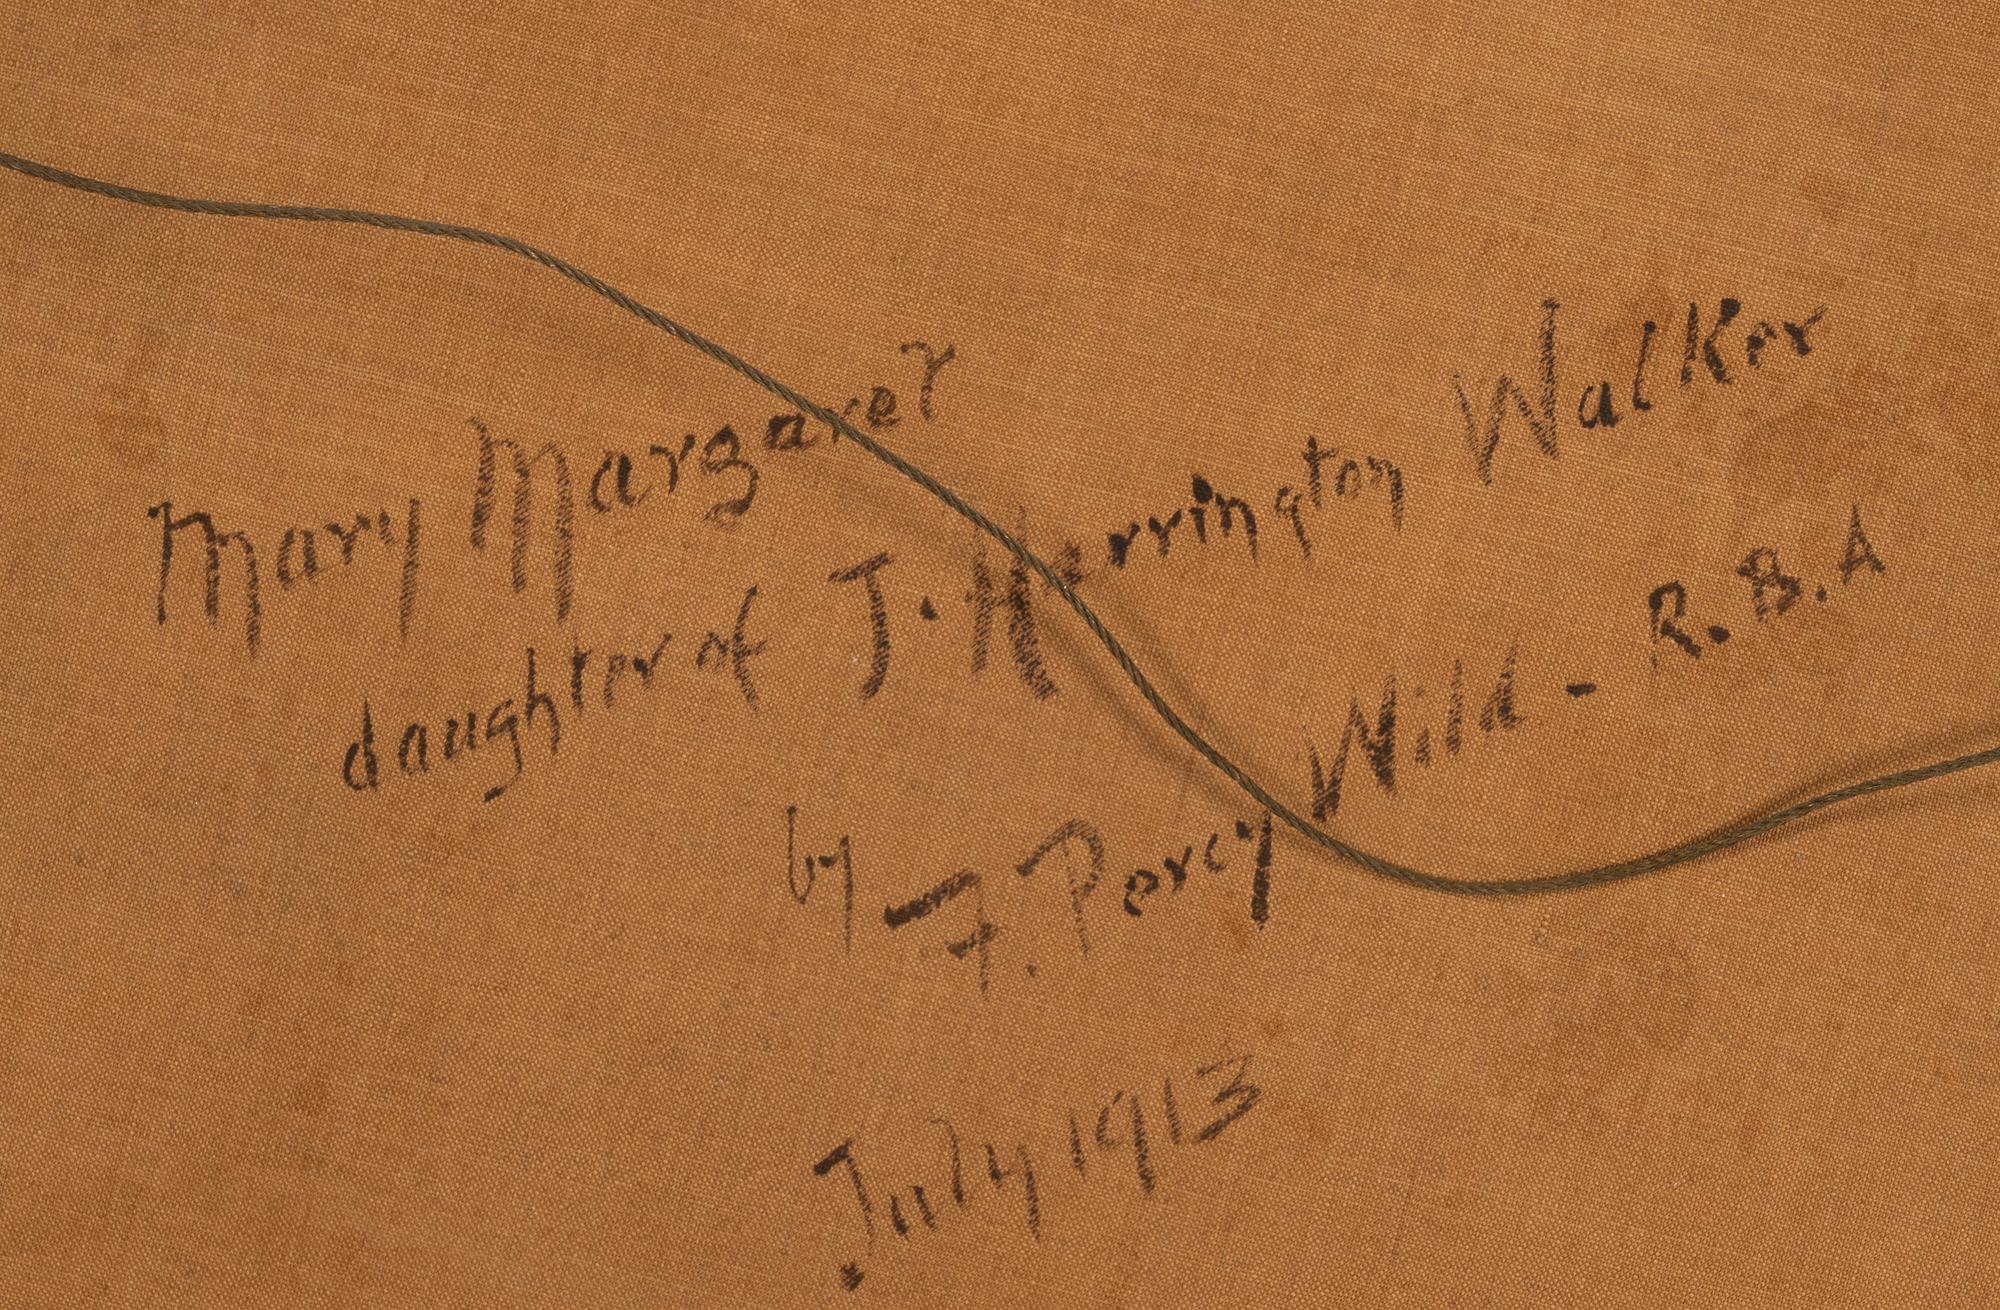 Mary Margaret
daughter of J. Herrington Walker
by F. Percy Wild - R.B.A
July 1913